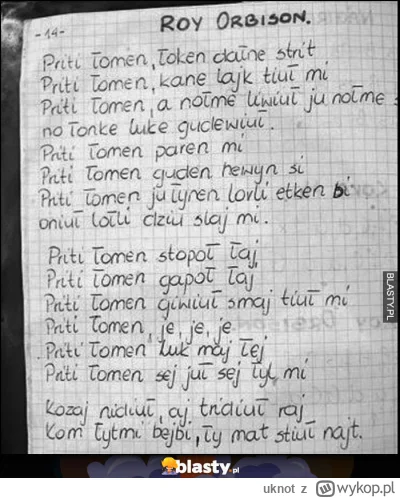 -14-
ROY ORBISON.
Priti Łomen, Token dałne strit
Priti Łomen, kane lajk tiuł mi
Priti Łomen, a nołme liwiuł ju nołme
no Tonke luke gudewiuł.
Priti Łomen paren mi
Priti Łomen guden hewyn si
Priti Łomen ju łynen lovli etken bi
oniuł lołli dziu słaj mi.
Priti Łomen stopoł łaj
Priti Łomen gapoł łaj
Priti Łomen giwiuł smaj tiuł mi
Priti Łomen, je, je, je
Priti Łomen luk maj łej
Priti Łomen sej juł sej łyl mi
Kozaj nidiuł, aj tridiuł raj
Kom łytmi bejbi, ły mat stiuł najt.
BLASTY.PL
blasty.pl
uknot z wykop.pl